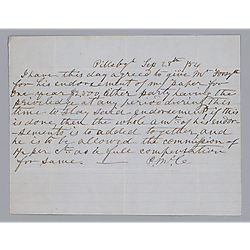 Pittsbgh Sep 28th /54
I have this day agreed to give Mr
for his endorsement of my paper for
one year $2,000, either party having the
priviledge at any period during this
time to stay said endorsement, if this
is done, then the whole amt. of his endor-
sements is to added together, and
he is to be allowed the commission of
per ct as a full compensation
for same.